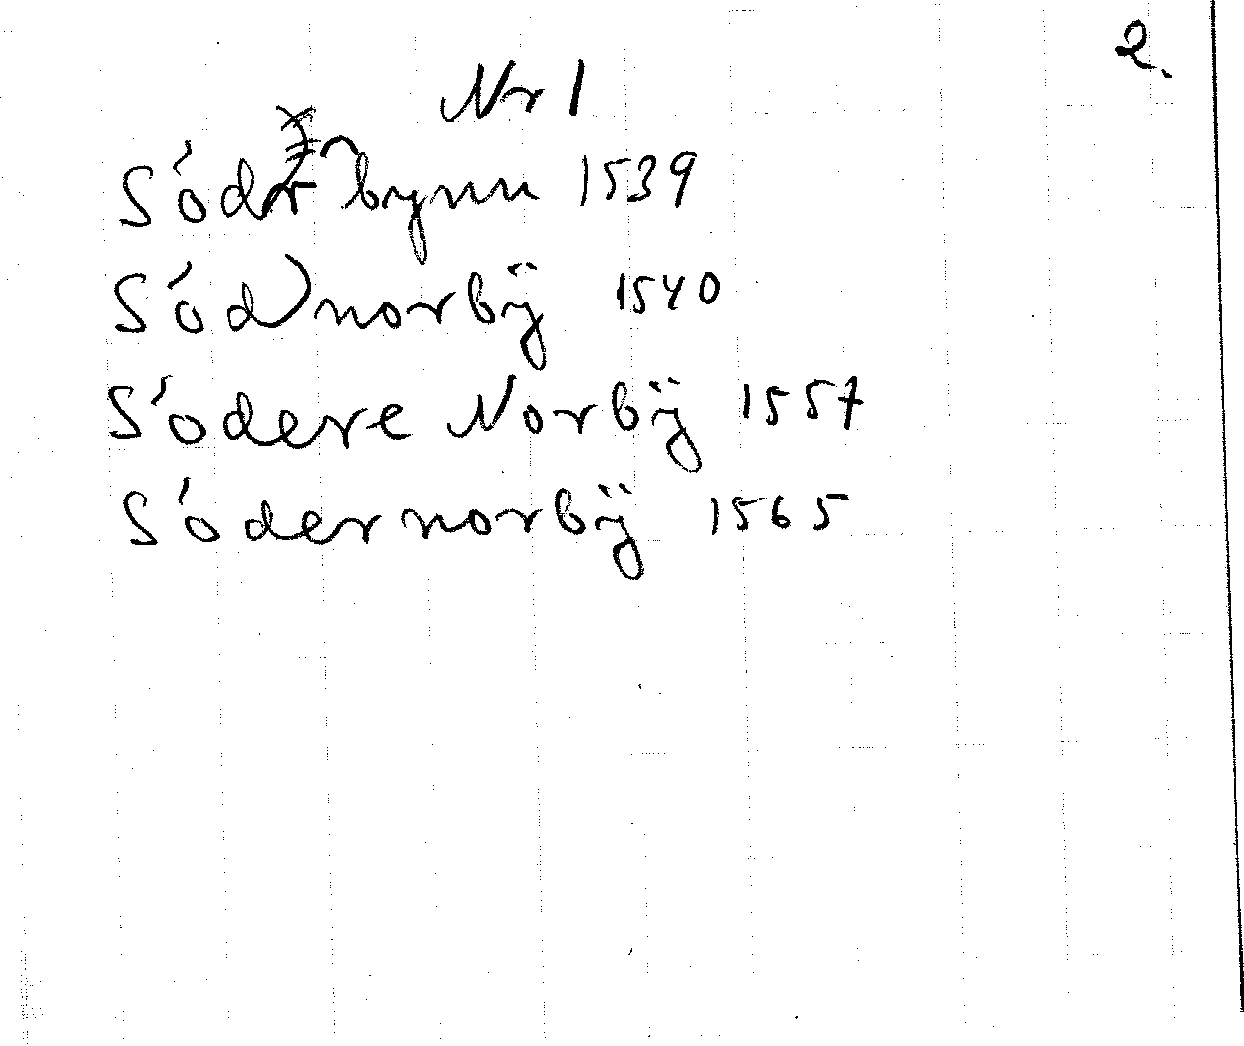 2.
Nr 1
Söder bynn 1539
Söd norbÿ 1540
Södere Norbÿ 1557
Södernorbÿ 1565